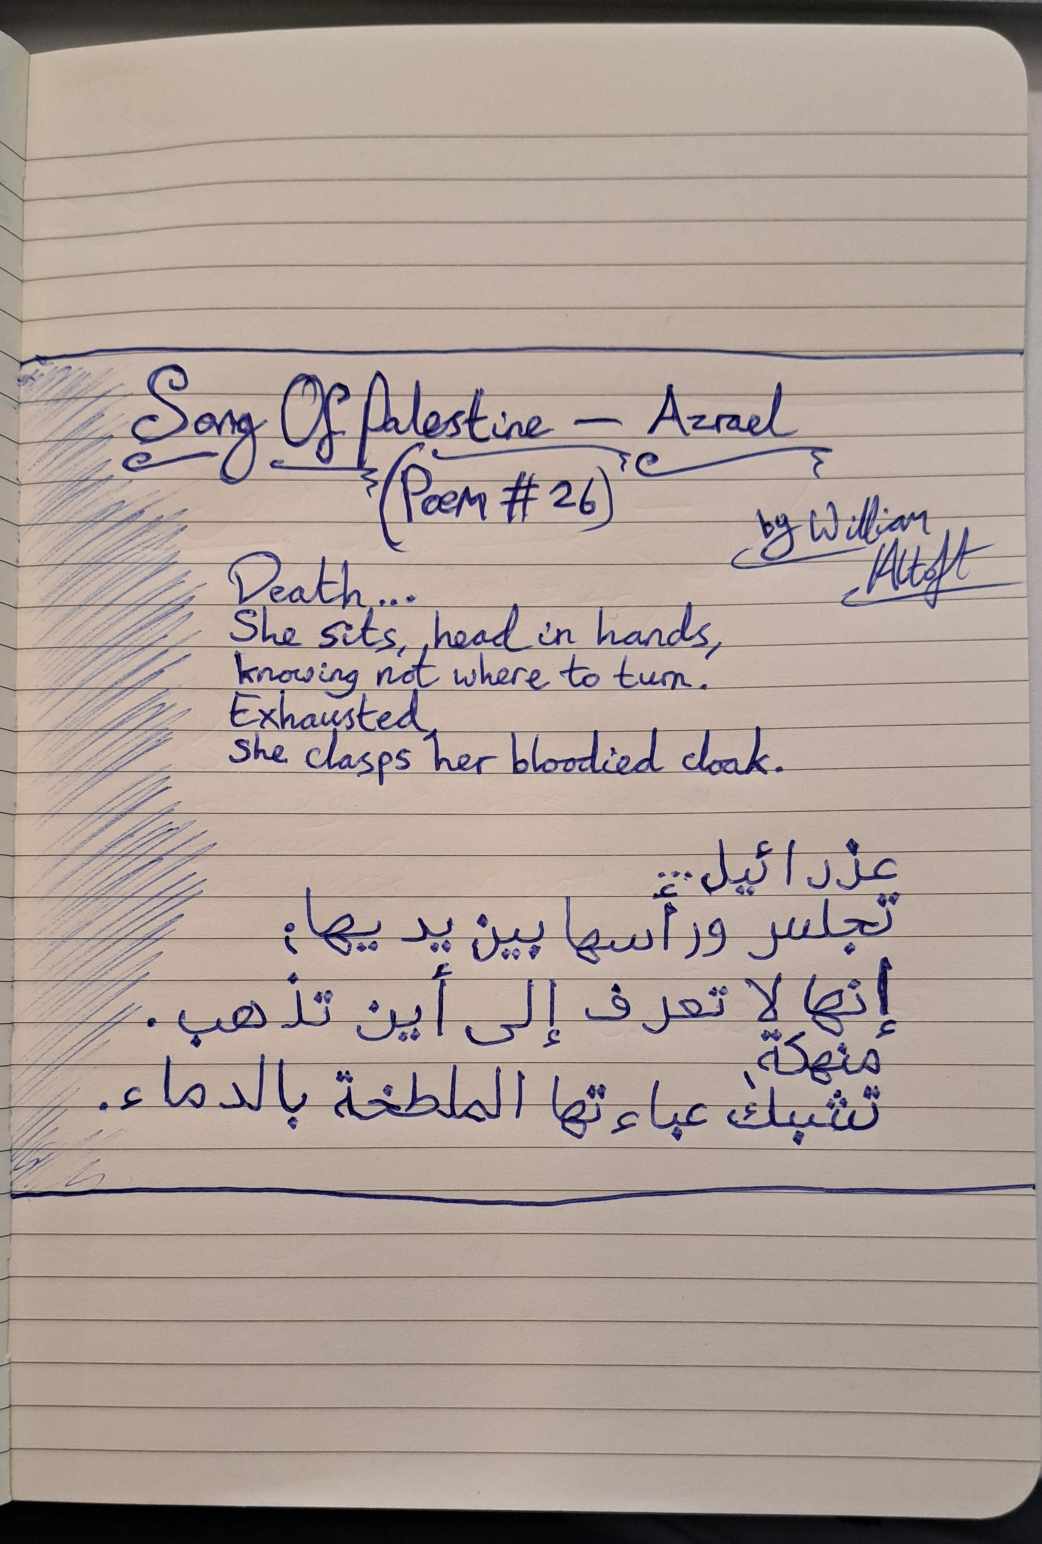 Song Of Palestine – Azrael
(Poem # 26)
by William
Altoft
Death...
She sits, head in hands,
knowing not where to turn.
Exhausted,
she clasps her bloodied cloak.
عزرائيل...
تجلس ورأسها بين يديها؛
إنها لا تعرف إلى أين تذهب.
منهكة،
تشبك عباءتها الملطخة بالدماء.